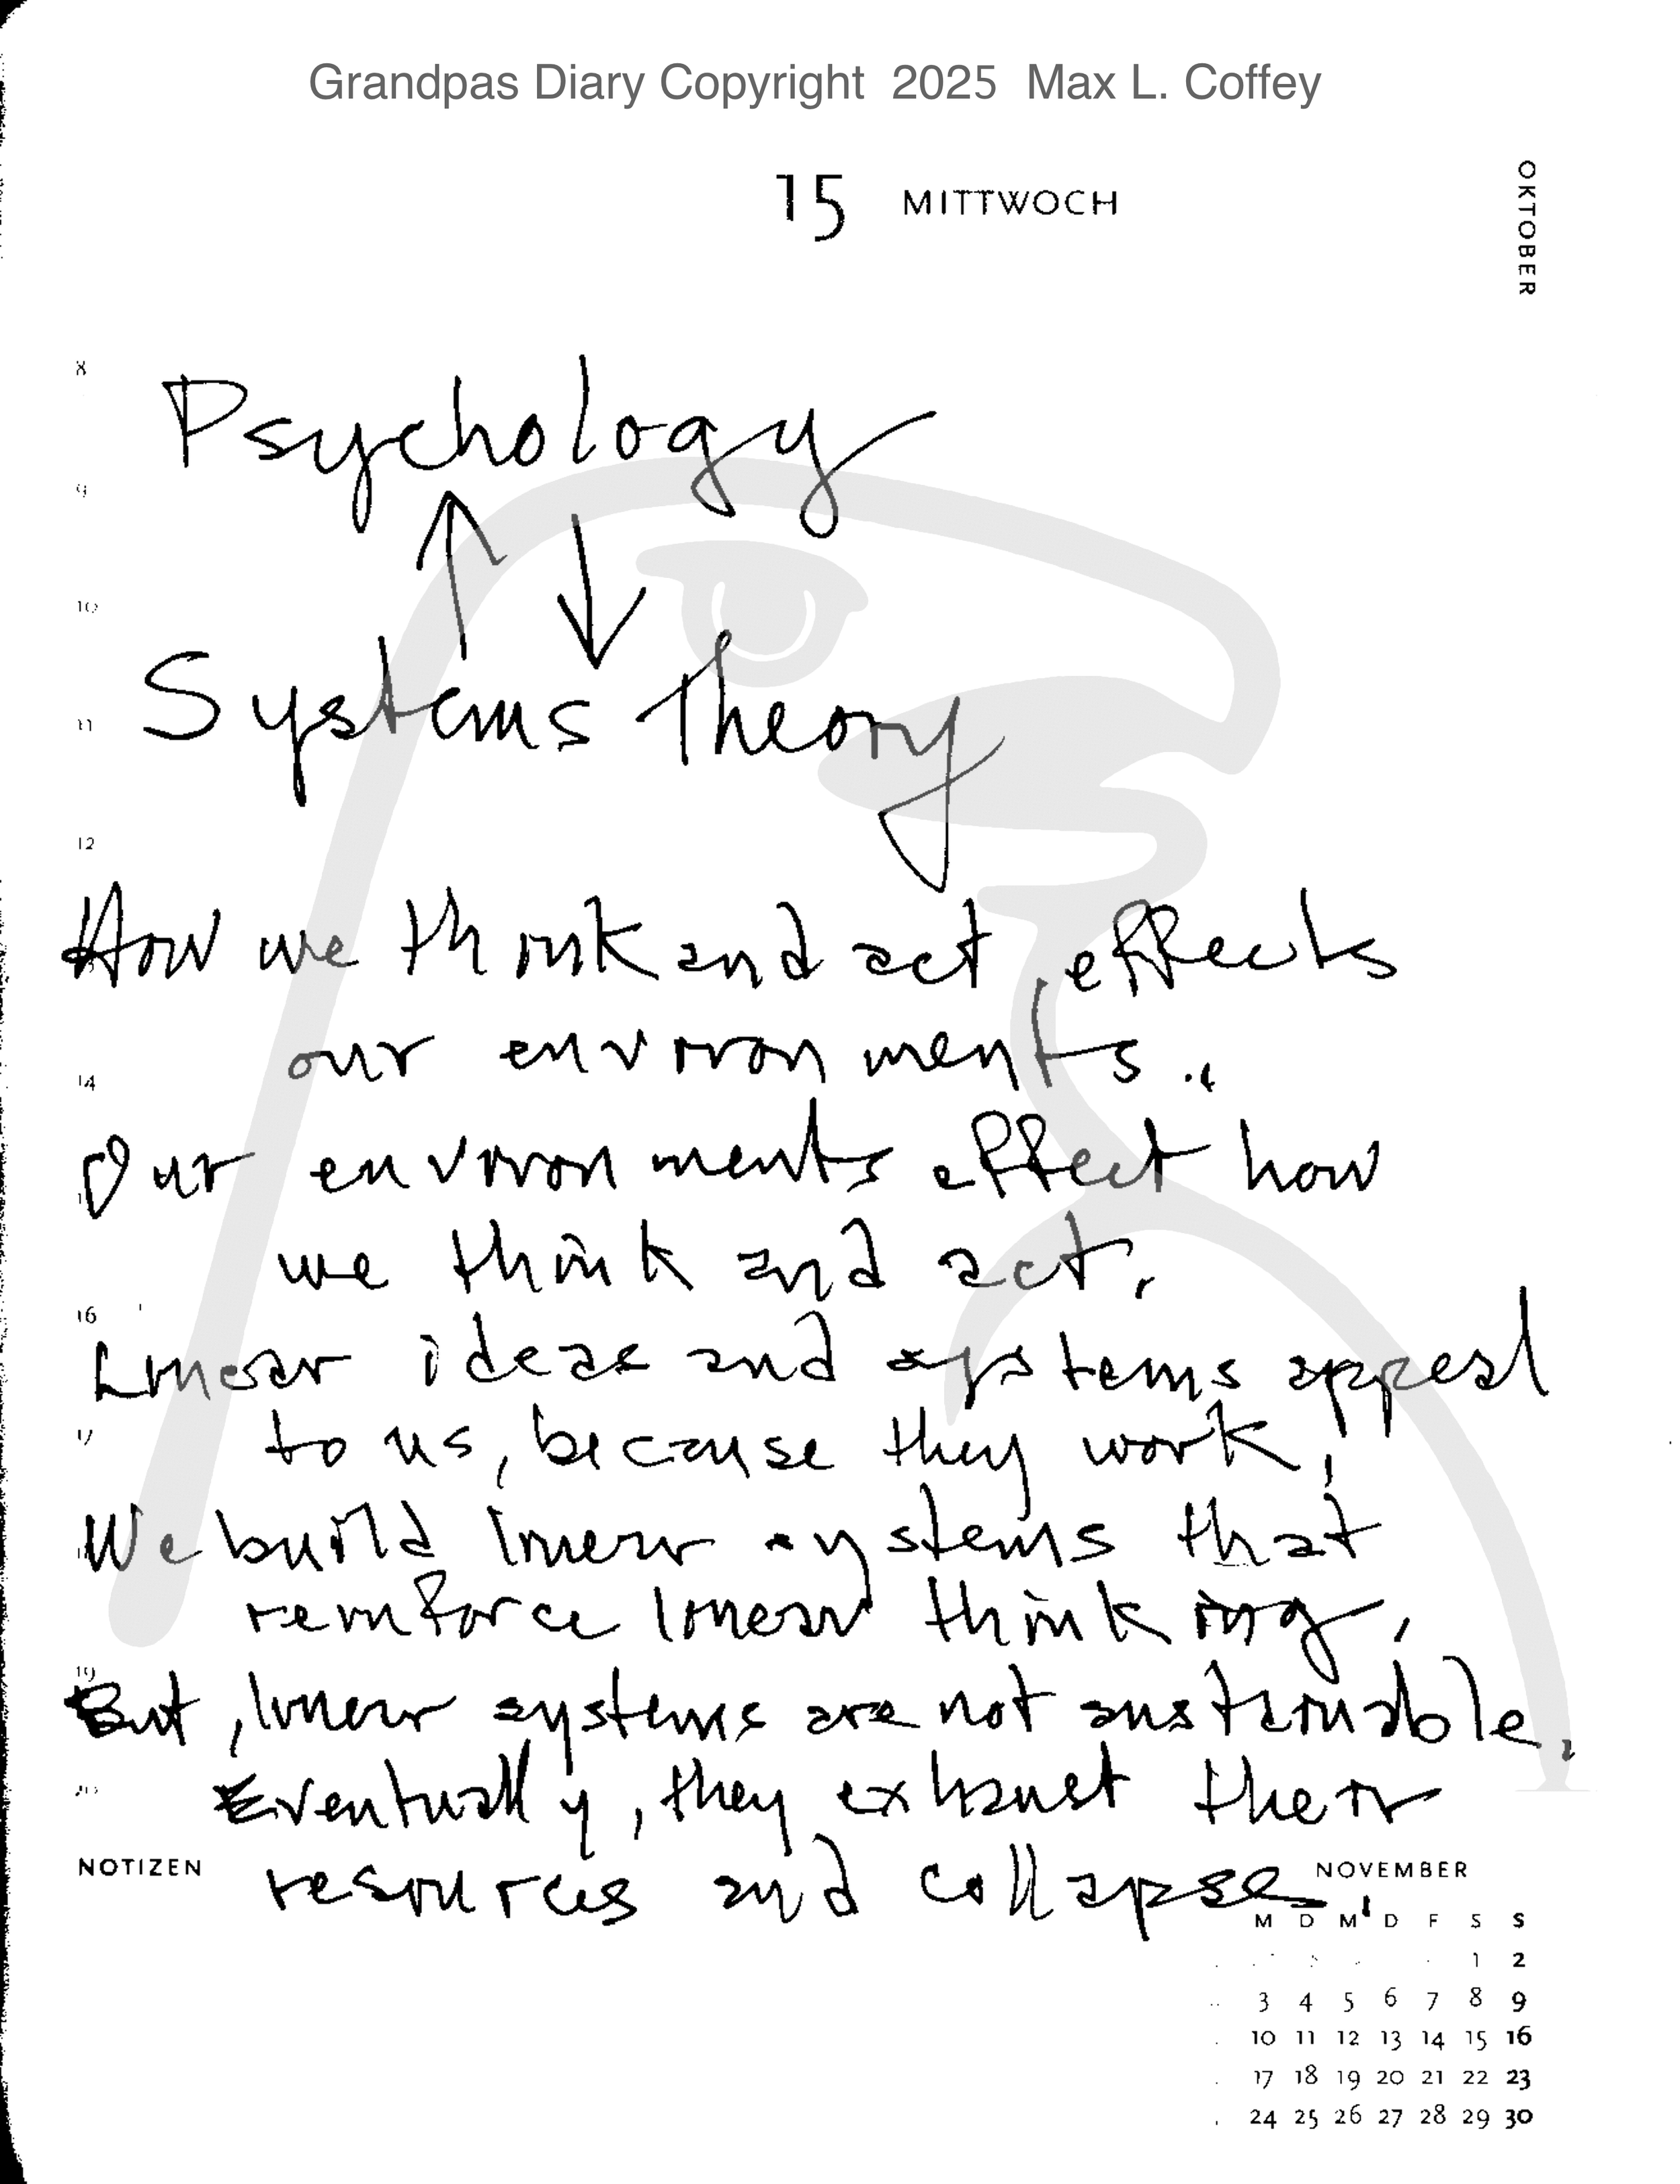 Grandpas Diary Copyright 2025 Max L. Coffey
15 MITTWOCH
OKTOBER
8
Psychology
9
↑ ↓
10
Systems Theory
11
12
How we think and act, effects
our environments.
14
Our environments effect how
we think and act.
16
Linear ideas and systems appeal
to us, because they work,
17
We build linear systems that
reinforce linear thinking,
19
But, linear systems are not sustainable.
20
Eventually, they exhaust their
resources and collapse.
NOTIZEN
NOVEMBER
M D M D F S S
1 2
3 4 5 6 7 8 9
10 11 12 13 14 15 16
17 18 19 20 21 22 23
24 25 26 27 28 29 30